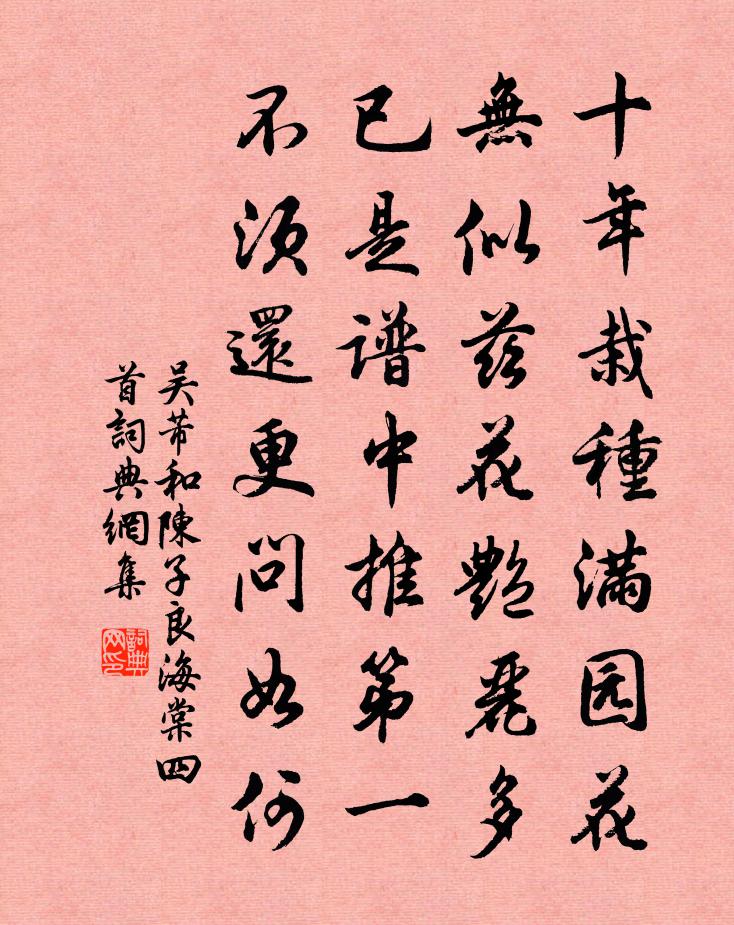 十年栽種满园花
無似兹花艷麗多
已是谱中推第一
不须還更问如何
吴芾和陳子良海棠四
首詞典網集
詞典
网印